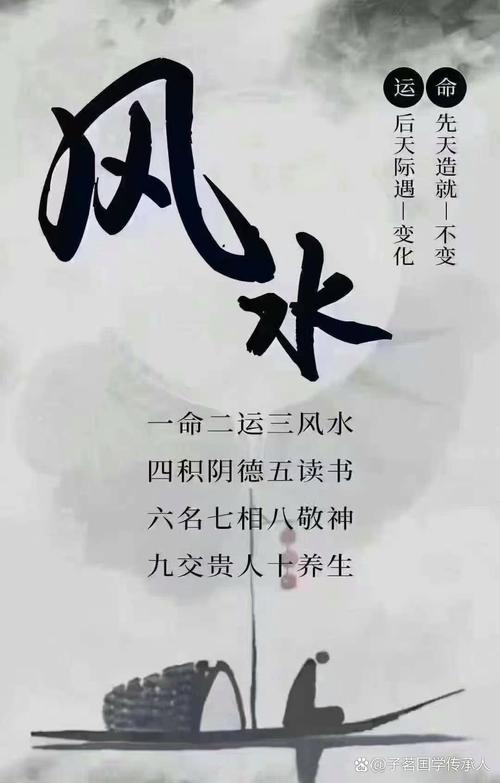 风水
命 先天造就—不变
运 后天际遇—变化
一命二运三风水
四积阴德五读书
六名七相八敬神
九交贵人十养生
@子茗国学传承人